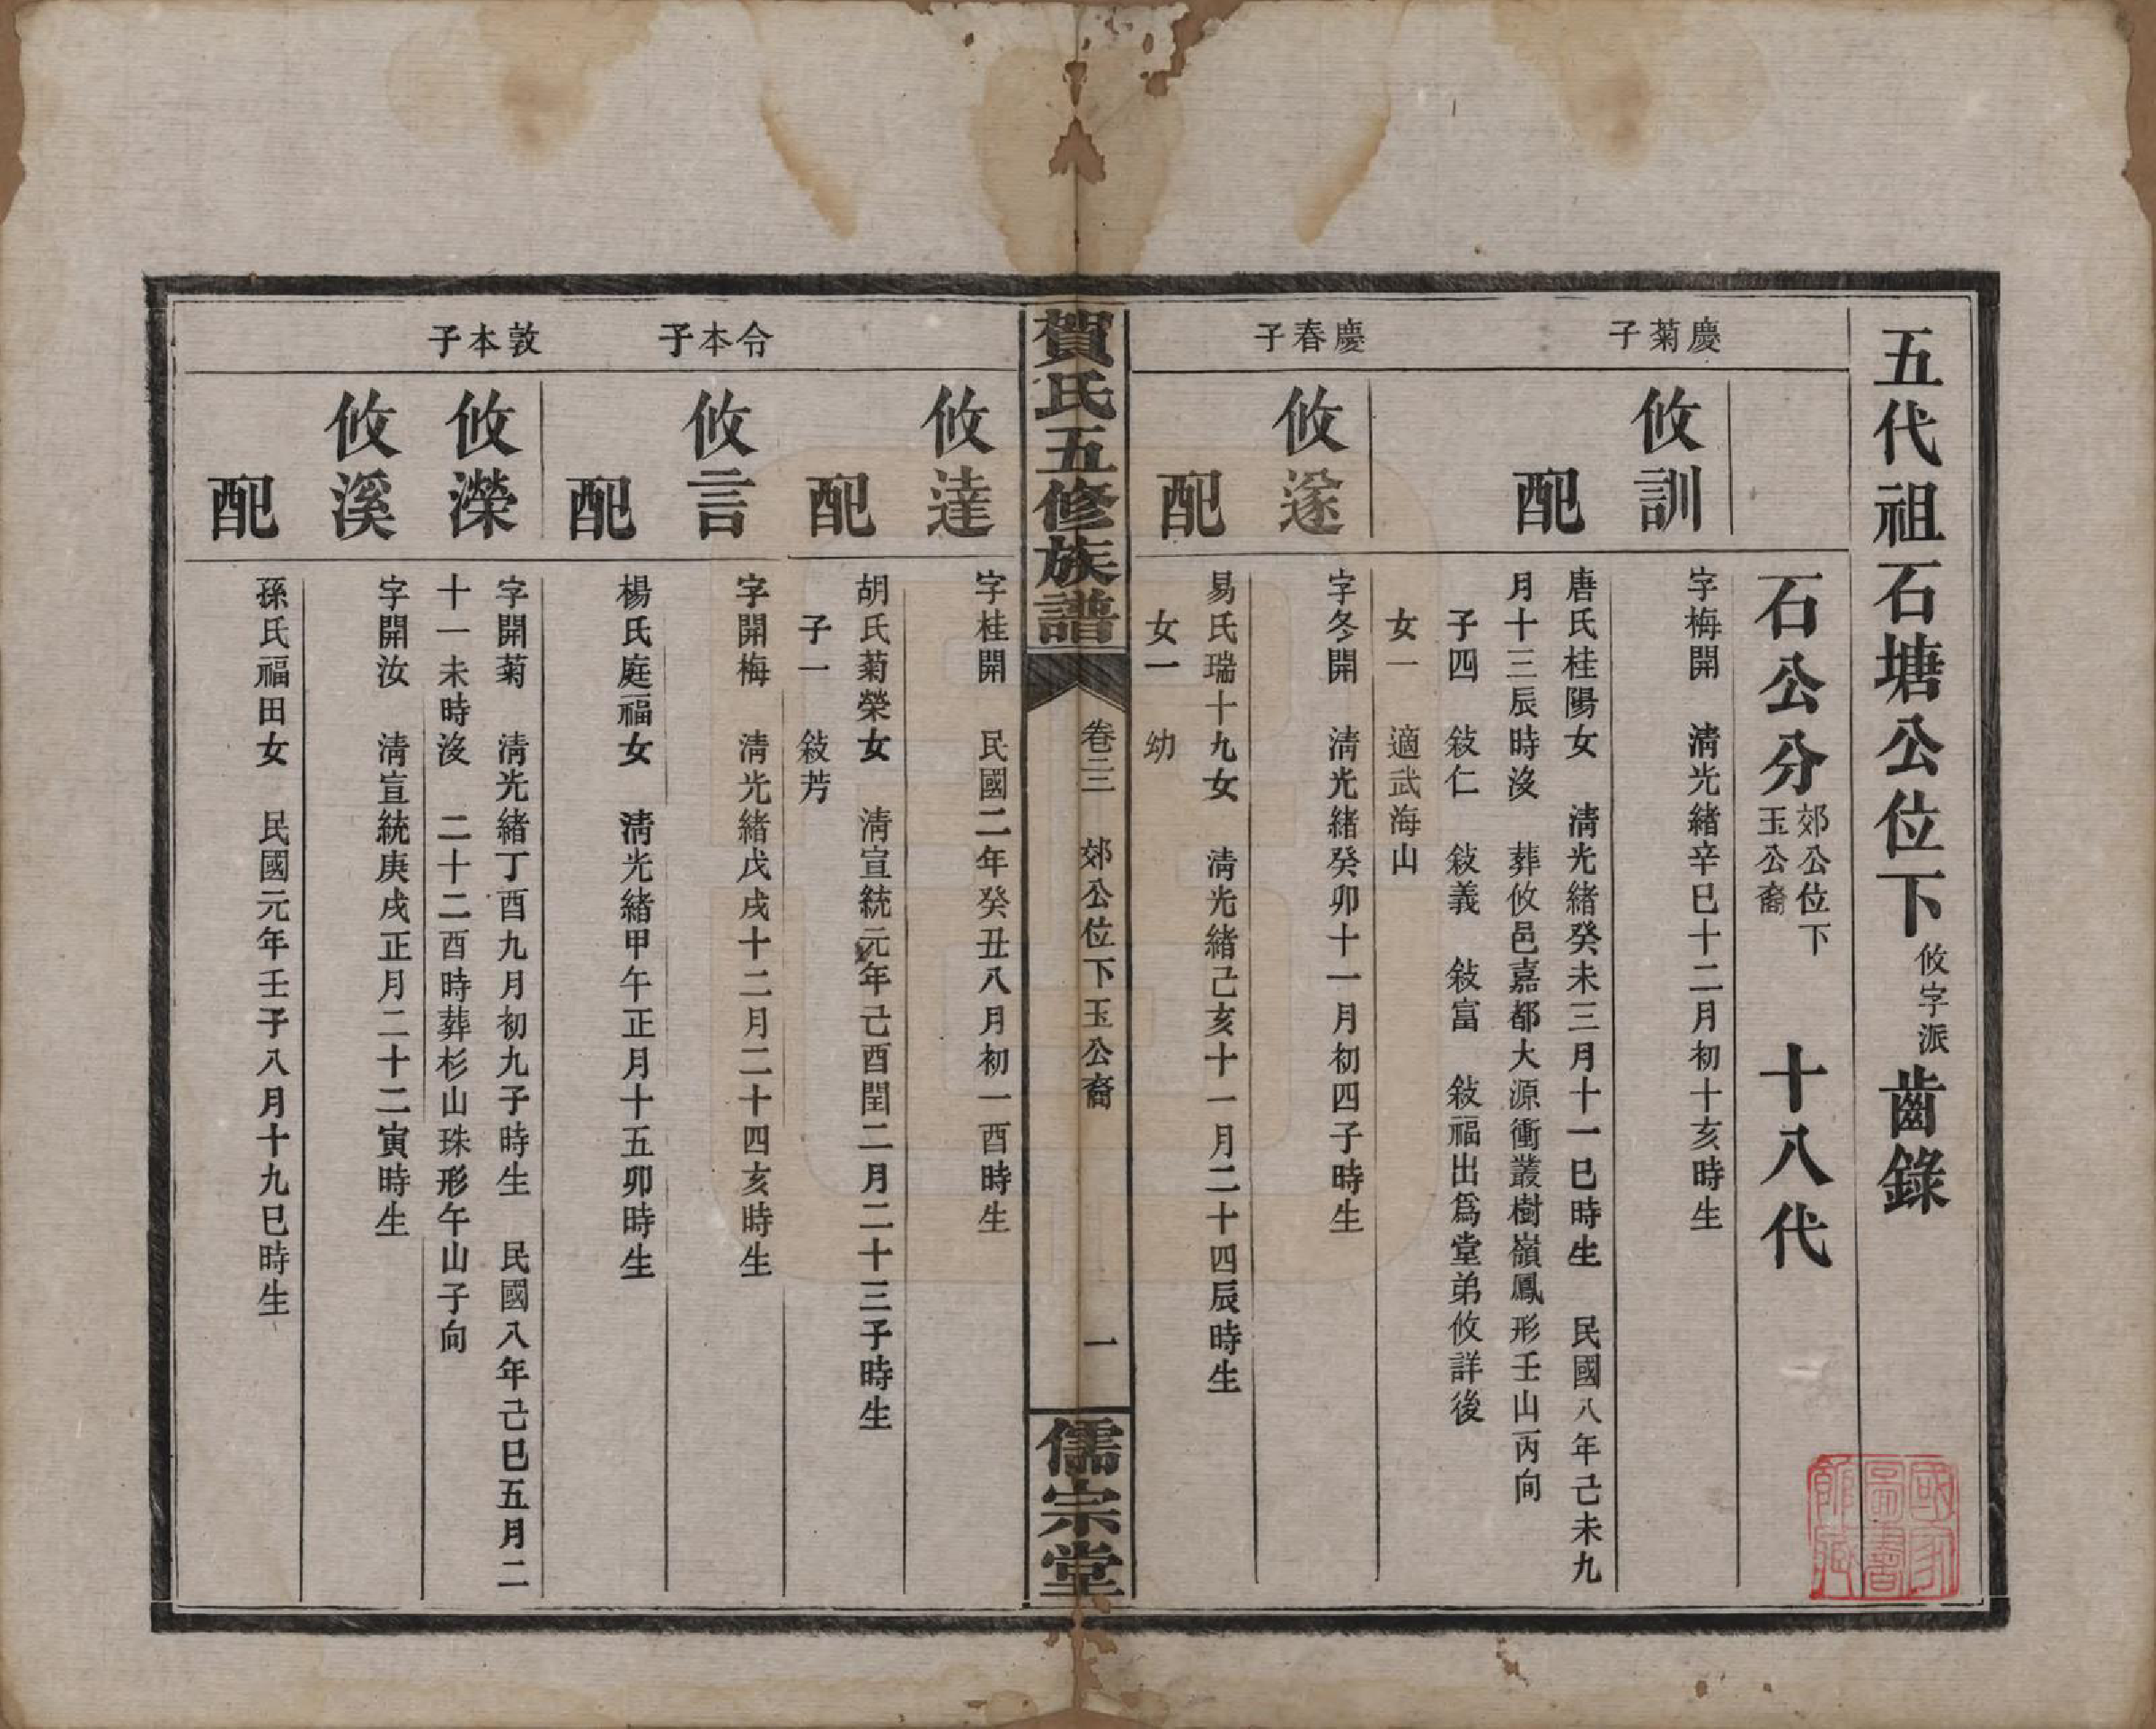 五代祖石塘公位下攸字派齒錄
石公分郊公位下玉公裔 十八代
慶菊子
攸訓
字梅開 淸光緒辛巳十二月初十亥時生
配
唐氏桂陽女 淸光緒癸未三月十一巳時生 民國八年己未九
月十三辰時沒 葬攸邑嘉都大源衝叢樹嶺鳳形壬山丙向
子四 敍仁 敍義 敍富 敍福出爲堂弟攸詳後
女一 適武海山
慶春子
攸遂
字冬開 淸光緒癸卯十一月初四子時生
配
易氏瑞十九女 淸光緒己亥十一月二十四辰時生
女一 幼
賀氏五修族譜 卷三 郊公位下玉公裔 一 儒宗堂
攸達
字桂開 民國二年癸丑八月初一酉時生
配
胡氏菊榮女 淸宣統元年己酉閏二月二十三子時生
子一 敍芳
令本子
攸言
字開梅 淸光緒戊戌十二月二十四亥時生
配
楊氏庭福女 淸光緒甲午正月十五卯時生
敦本子
攸濚
字開菊 淸光緒丁酉九月初九子時生 民國八年己巳五月二
十一未時沒 二十二酉時葬杉山珠形午山子向
攸溪
字開汝 淸宣統庚戌正月二十二寅時生
配
孫氏福田女 民國元年壬子八月十九巳時生
國家圖書館藏